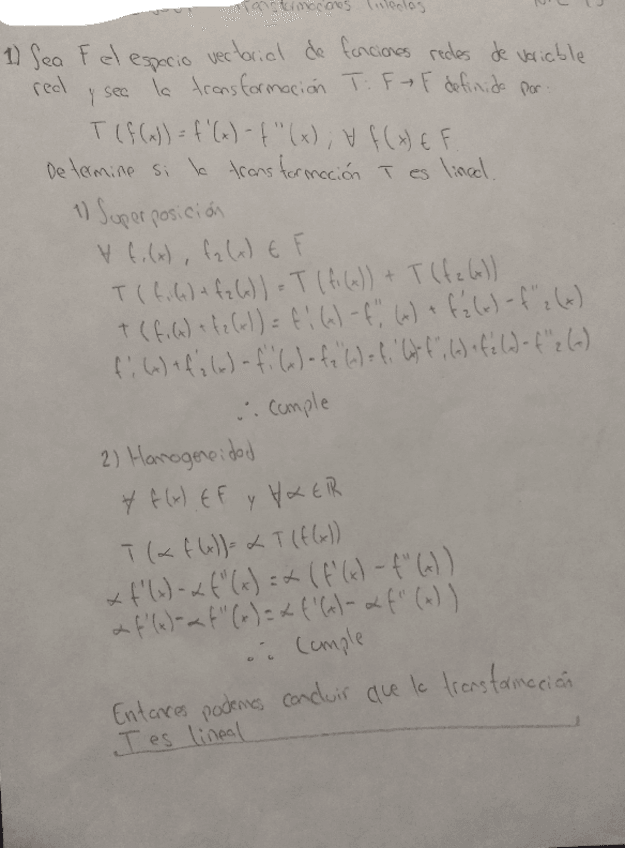 Transformaciones lineales
1) Sea F el espacio vectorial de funciones reales de variable
real y sea la transformación T: F → F definida por:
T(f(x)) = f'(x) - f''(x), ∀ f(x) ∈ F
Determine si la transformación T es lineal.
1) Superposición
∀ f₁(x), f₂(x) ∈ F
T(f₁(x) + f₂(x)) = T(f₁(x)) + T(f₂(x))
T(f₁(x) + f₂(x)) = f'₁(x) - f''₁(x) + f'₂(x) - f''₂(x)
f'₁(x) + f'₂(x) - f''₁(x) - f₂''(x) = f₁'(x) - f''₁(x) + f'₂(x) - f''₂(x)
∴ Cumple
2) Homogeneidad
∀ f(x) ∈ F y ∀ α ∈ ℝ
T(α f(x)) = α T(f(x))
α f'(x) - α f''(x) = α (f'(x) - f''(x))
α f'(x) - α f''(x) = α f'(x) - α f''(x))
∴ Cumple
Entonces podemos concluir que la transformación
T es lineal